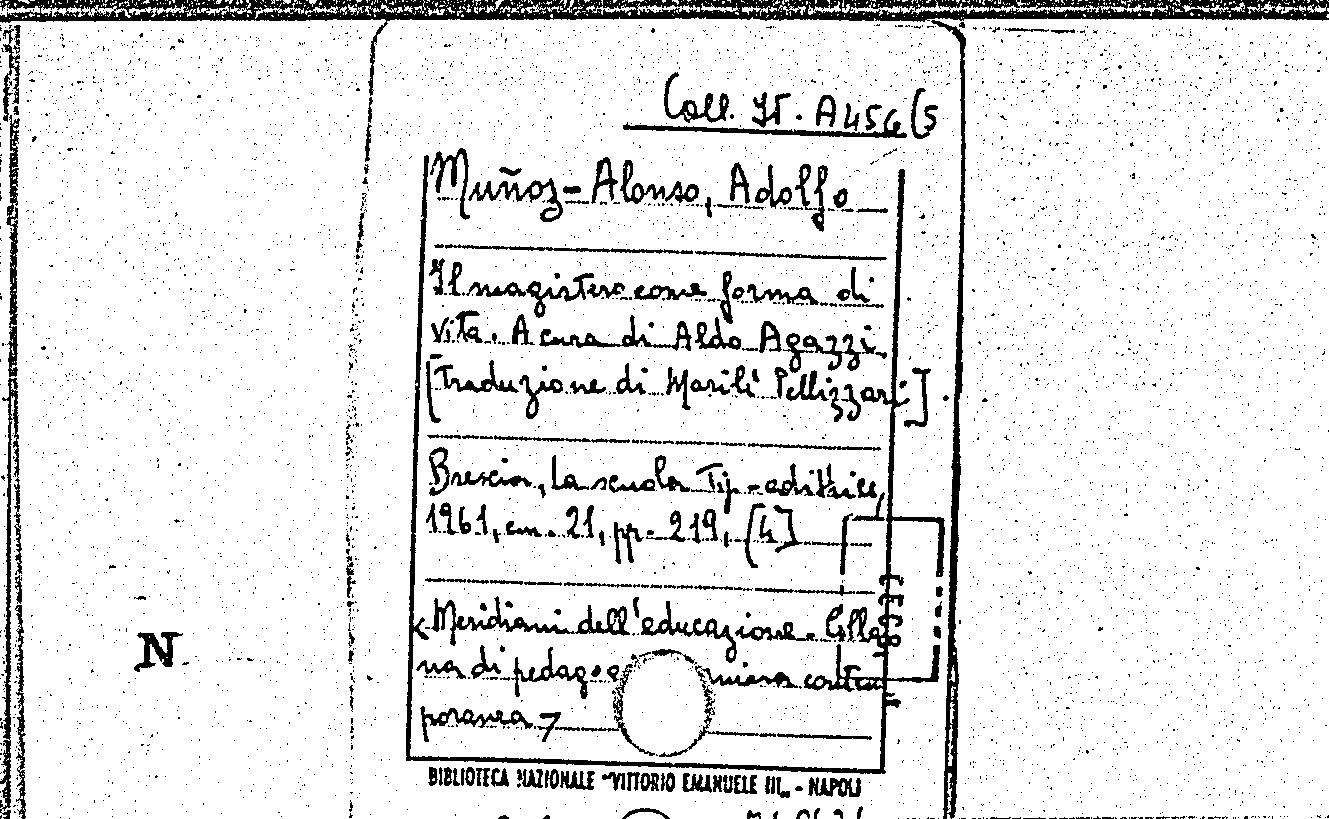 Coll. It. A 456 (5
Muñoz-Alonso, Adolfo
Il magistero come forma di
vita. A cura di Aldo Agazzi
[Traduzione di Marilì Pellizzari].
Brescia, La scuola Tip-editrice,
1961, cm. 21, pp. 219, [4]
<Meridiani dell'educazione. Colla
na di pedag contem
poranea>
N
BIBLIOTECA NAZIONALE "VITTORIO EMANUELE III„ - NAPOLI